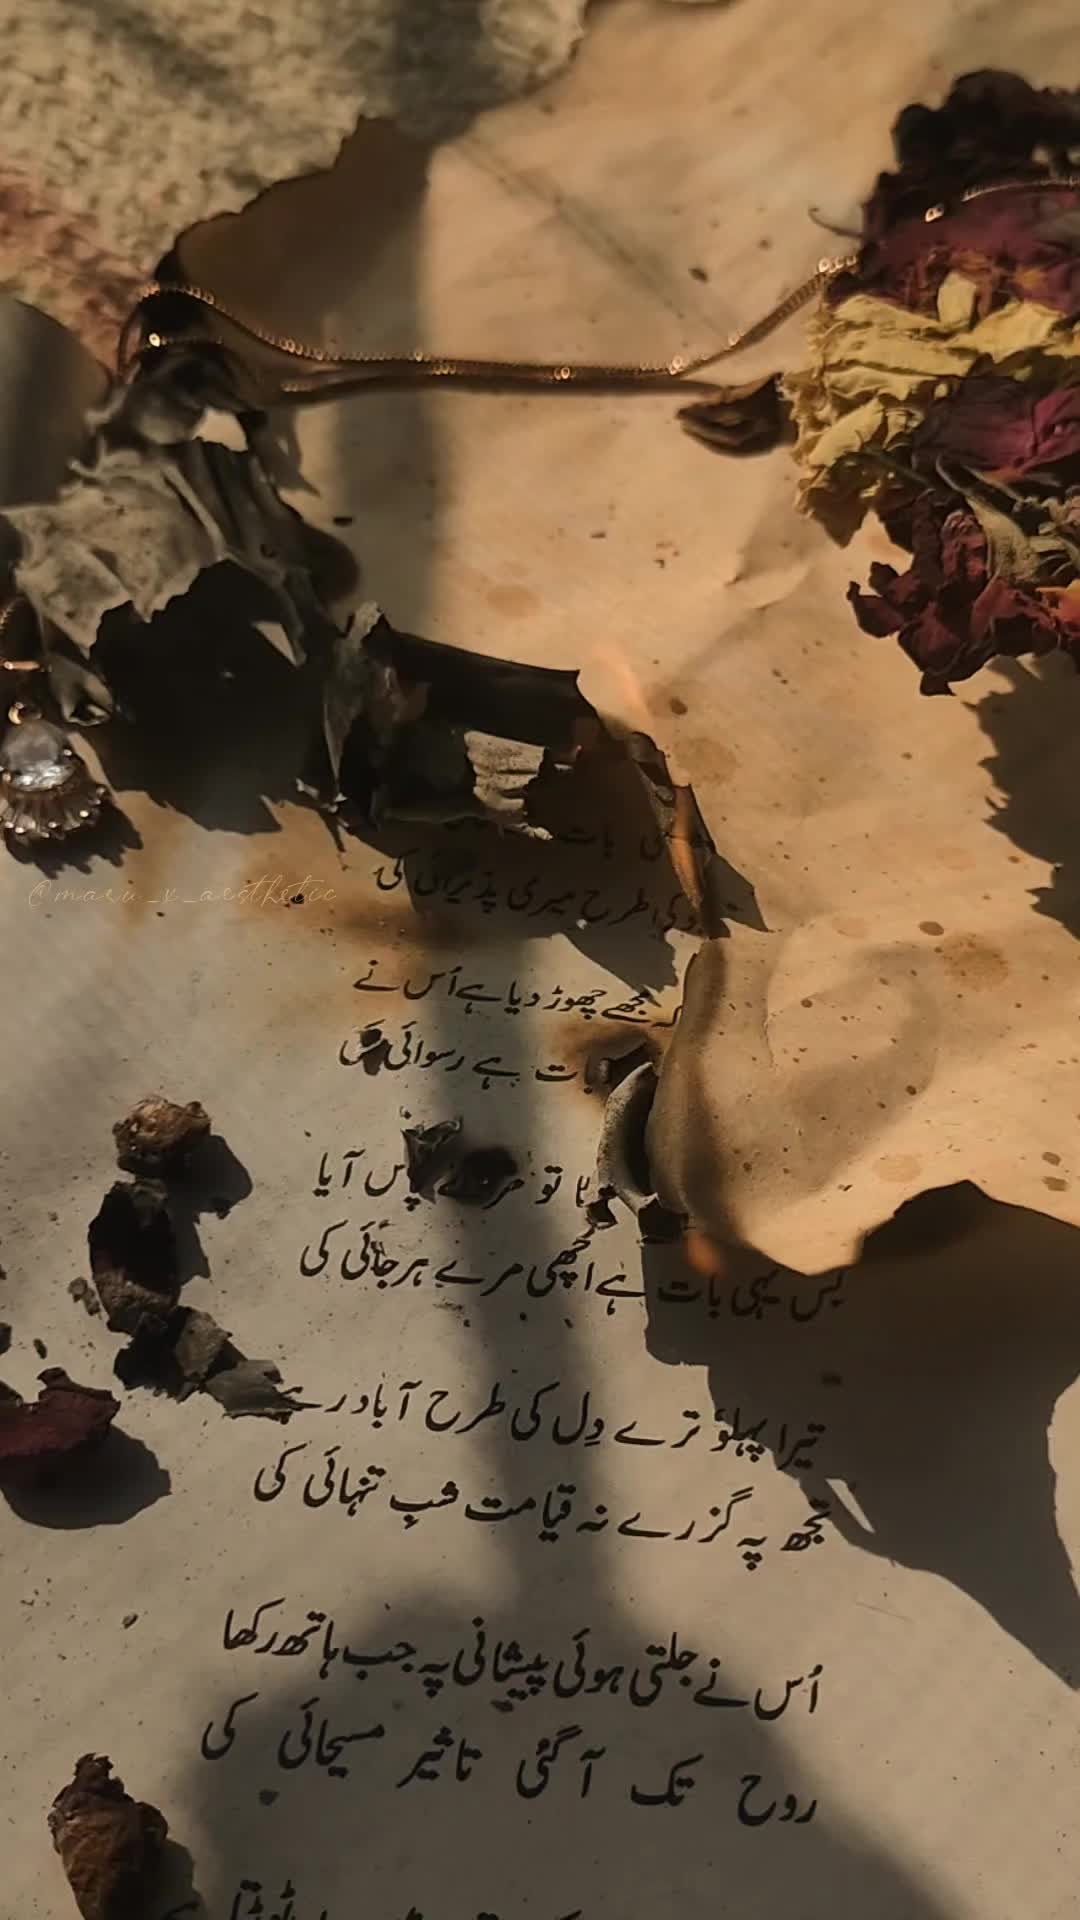 بات
کی طرح میری پذیرائی کی
مجھے چھوڑ دیا ہے اُس نے
بات ہے رسوائی
تو پاس آیا
بس یہی بات ہے اچھی مرے ہرجائی کی
تیرا پہلو ترے دِل کی طرح آباد رہے
تجھ پہ گزرے نہ قیامت شبِ تنہائی کی
اُس نے جلتی ہوئی پیشانی پہ جب ہاتھ رکھا
روح تک آ گئی تاثیر مسیحائی کی
@maru_x_aesthetic